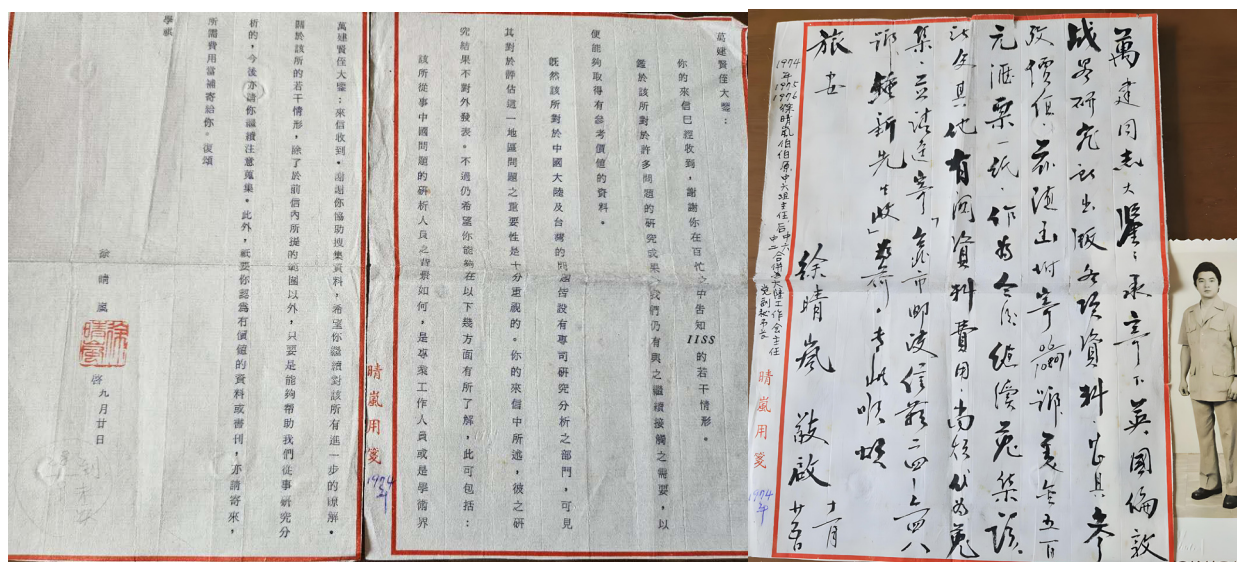 萬建賢侄大鑒：來信收到。謝謝你協助搜集資料，希望你繼續對該所有進一步的瞭解。
關於該所的若干情形，除了於前信內所提的範圍以外，只要是能夠幫助我們從事研究分
析的，今後亦請你繼續注意蒐集。此外，祇要你認為有價值的資料或書刊，亦請寄來，
所需費用當補寄給你。復頌
學祺
徐晴嵐
徐晴嵐
啓九月廿日
萬建賢侄大鑒：
你的來信已經收到，謝謝你在百忙之中告知IISS的若干情形。
鑑於該所對於許多問題的研究成果，我們仍有與之繼續接觸之需要，以
便能夠取得有參考價值的資料。
既然該所對於中國大陸及台灣的問題皆設有專司研究分析之部門，可見
其對於評估這一地區問題之重要性是十分重視的。你的來信中所述，彼之研
究結果不對外發表。不過仍希望你能夠在以下幾方面有所了解，此可包括：
該所從事中國問題的研析人員之背景如何，是專業工作人員或是學術界
晴嵐用箋
1974年
萬建同志大鑒：承寄下英國倫敦
战畧研究所出版各項資料，甚具參
攷價值，茲隨函附寄 號美金五百
元滙票一紙，作為今後繼續蒐集該
所出具他有関資料費用，尚祈代為蒐
集，並請逕寄「台北市郵政信箱二四—二四八
號鍾新先生收」為荷，專此順頌
旅安
徐晴嵐 敬啟 十一月廿五日
1974年1975 1976徐晴嵐伯伯原中六组主任后中六
中二合併為大陸工作会主任
党副秘书长
晴嵐用箋
1974年